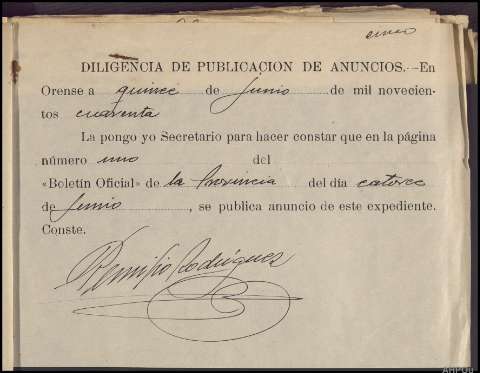 cinco
DILIGENCIA DE PUBLICACION DE ANUNCIOS.—En
Orense a quince de junio de mil novecien-
tos cuarenta
La pongo yo Secretario para hacer constar que en la página
número uno del
«Boletín Oficial» de la Provincia del día catorce
de Junio, se publica anuncio de este expediente.
Conste.
Remigio Rodríguez
AHPOu